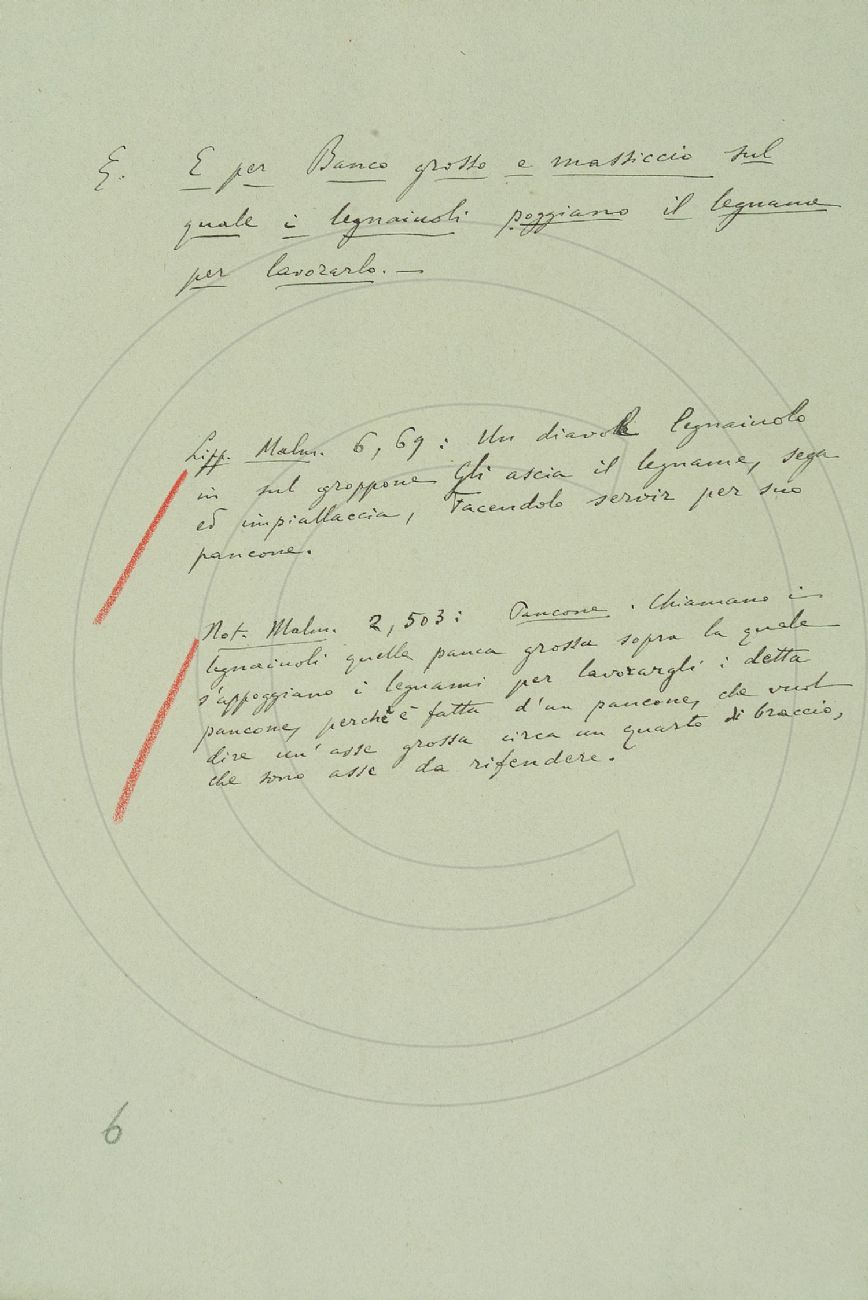 §. E per Banco grosso e massiccio sul
quale i legnaiuoli poggiano il legname
per lavorarlo. —
Lipp. Malm. 6, 69: Un diavol legnaiuolo
in sul groppone Gli ascia il legname, sega
ed impiallaccia, Facendolo servir per suo
pancone.
Not. Malm. 2, 503: Pancone. Chiamano i
legnaiuoli quella panca grossa sopra la quale
s'appoggiano i legnami per lavorargli: detta
pancone, perchè è fatta d'un pancone, che vuol
dire un'asse grossa circa un quarto di braccio,
che sono asse da rifendere.
6